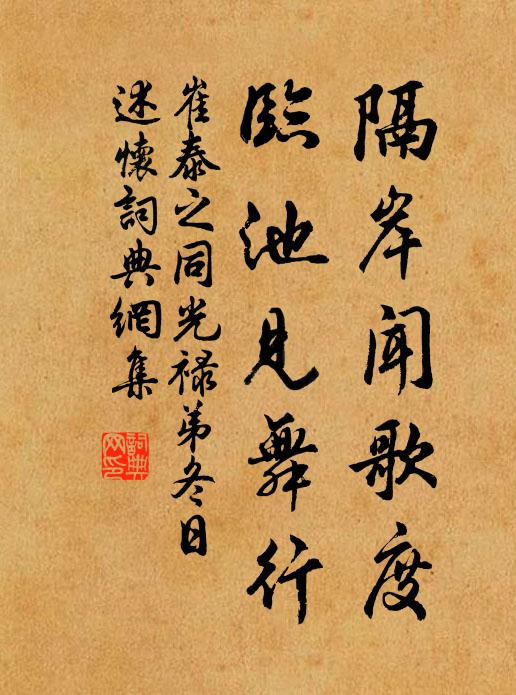 隔岸闻歌度
臨池見舞行
崔泰之同光禄弟冬日
述懷詞典網集
詞典
网印